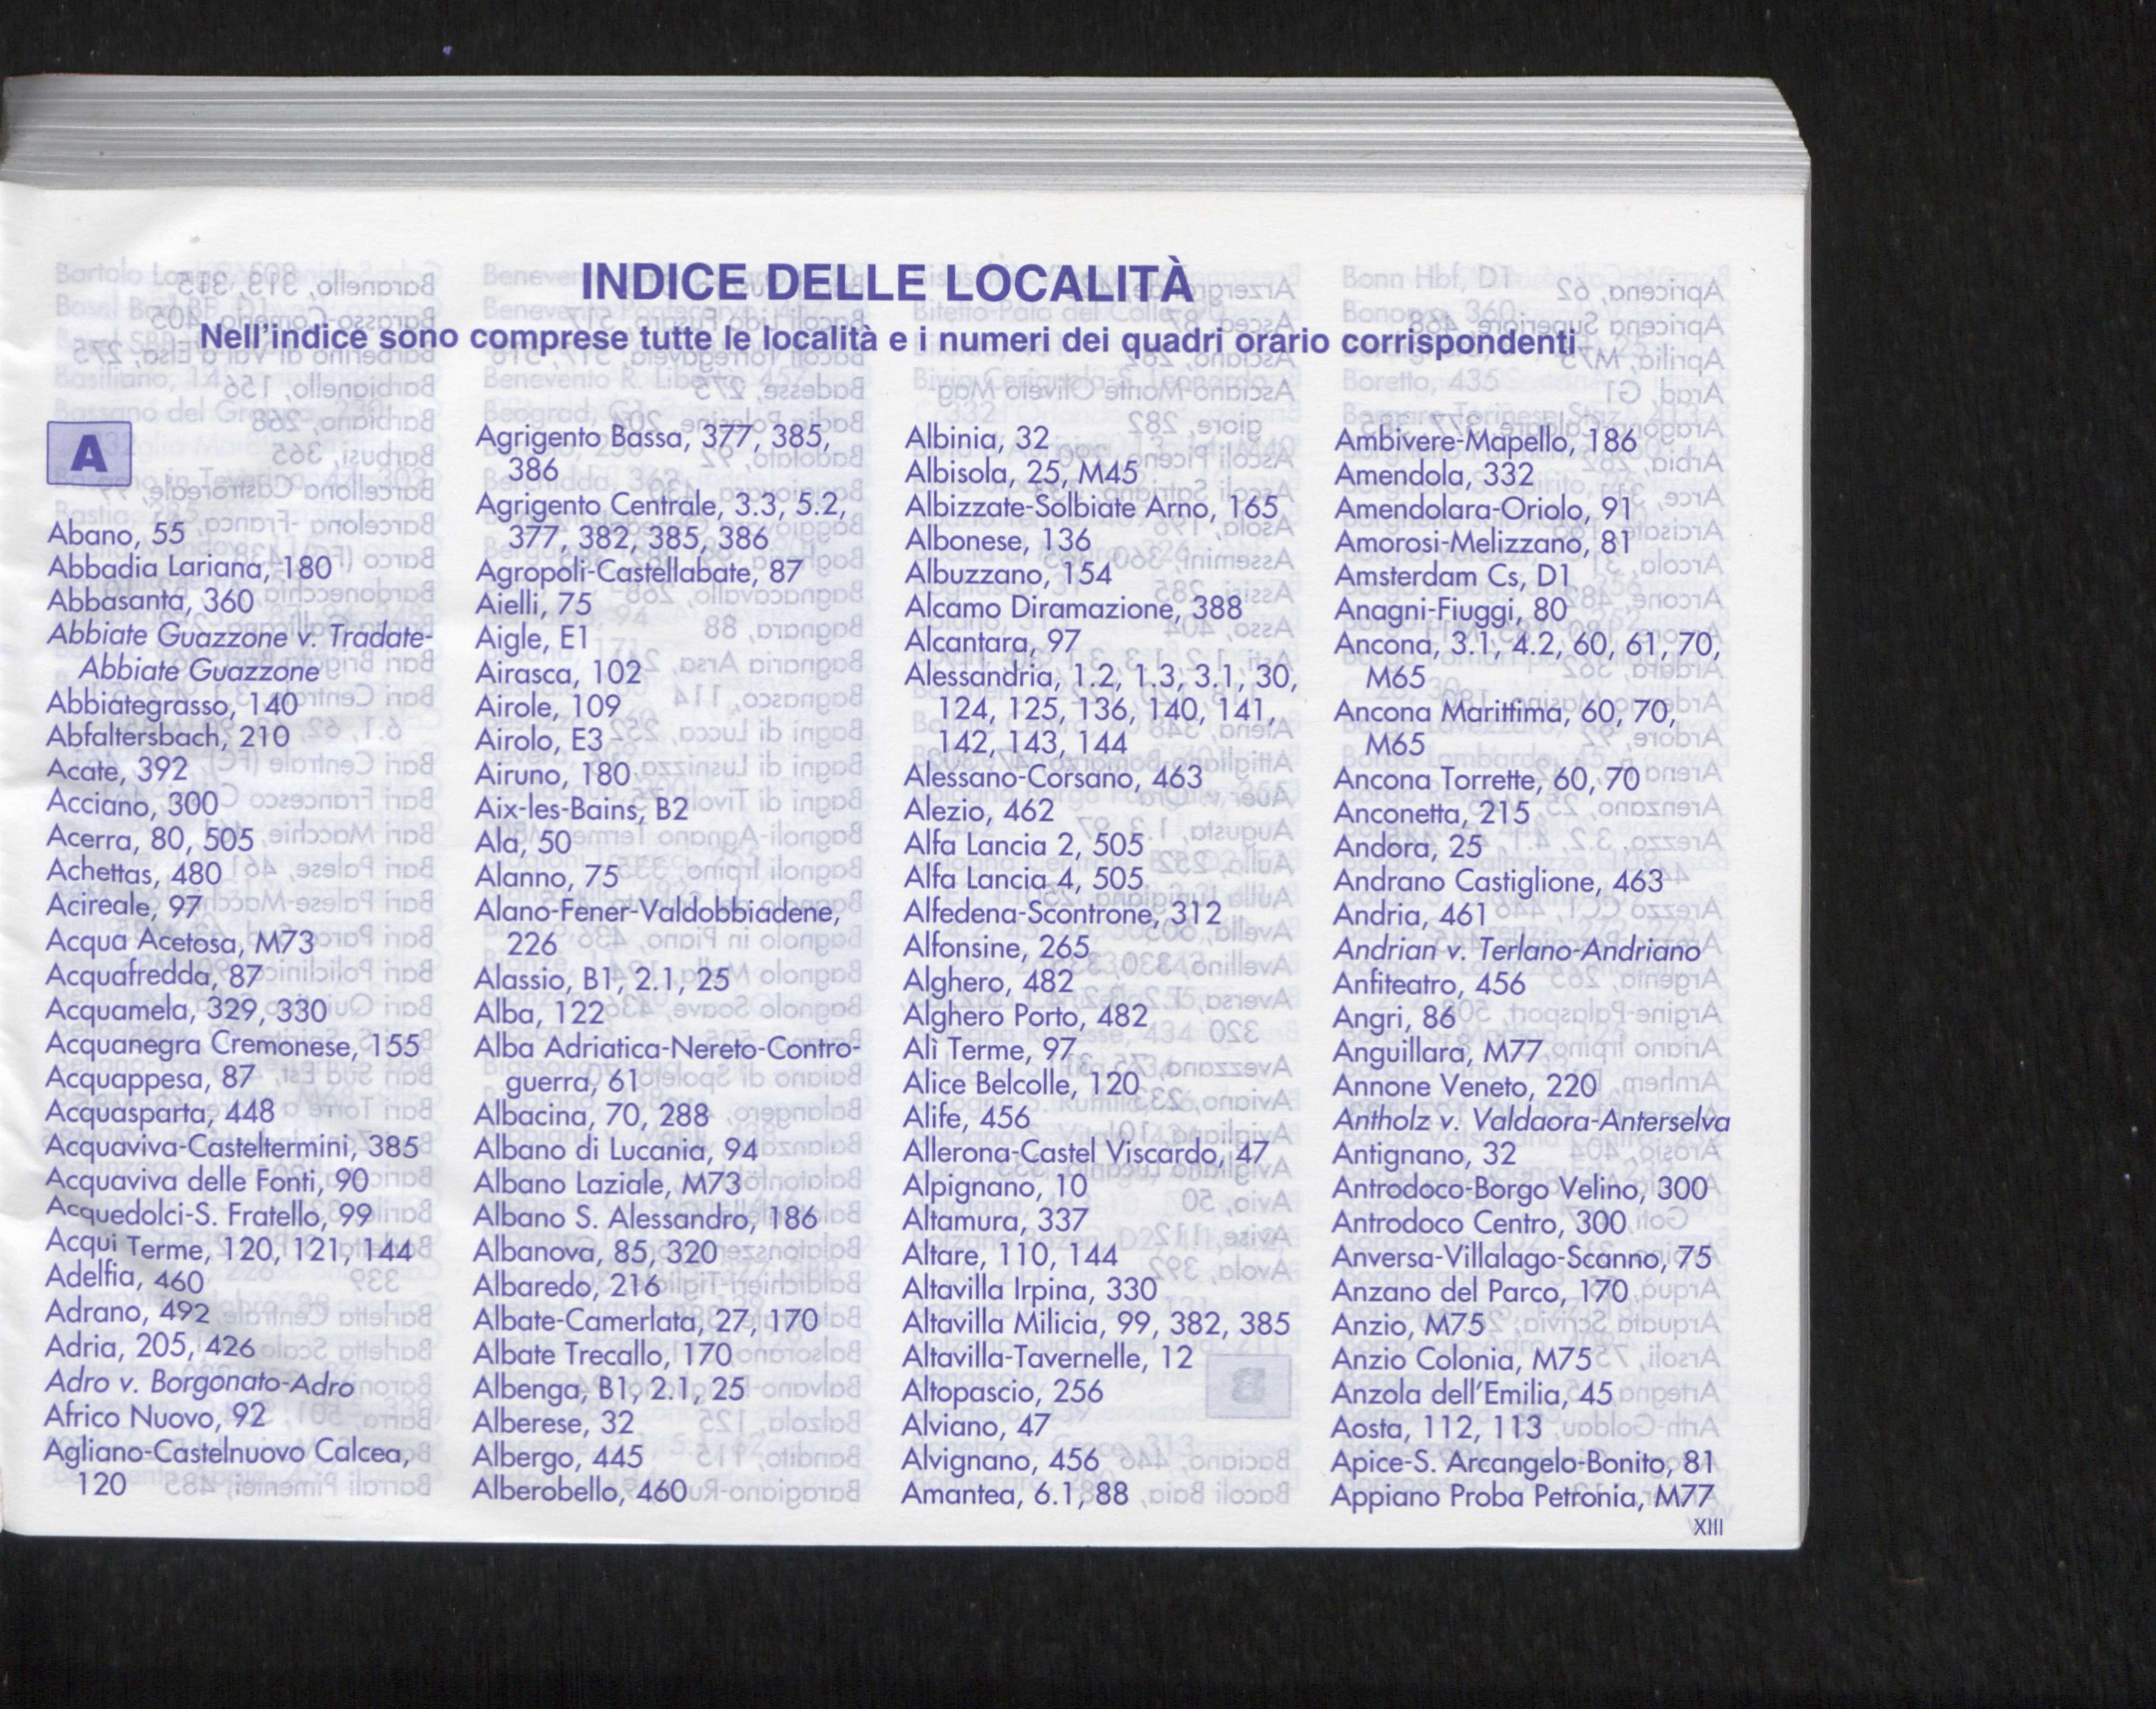 INDICE DELLE LOCALITÀ
Nell'indice sono comprese tutte le località e i numeri dei quadri orario corrispondenti
A
Abano, 55
Abbadia Lariana, 180
Abbasanta, 360
Abbiate Guazzone v. Tradate-
Abbiate Guazzone
Abbiategrasso, 140
Abfaltersbach, 210
Acate, 392
Acciano, 300
Acerra, 80, 505
Achettas, 480
Acireale, 97
Acqua Acetosa, M73
Acquafredda, 87
Acquamela, 329, 330
Acquanegra Cremonese, 155
Acquappesa, 87
Acquasparta, 448
Acquaviva-Casteltermini, 385
Acquaviva delle Fonti, 90
Acquedolci-S. Fratello, 99
Acqui Terme, 120, 121, 144
Adelfia, 460
Adrano, 492
Adria, 205, 426
Adro v. Borgonato-Adro
Africo Nuovo, 92
Agliano-Castelnuovo Calcea,
120
Agrigento Bassa, 377, 385,
386
Agrigento Centrale, 3.3, 5.2,
377, 382, 385, 386
Agropoli-Castellabate, 87
Aielli, 75
Aigle, E1
Airasca, 102
Airole, 109
Airolo, E3
Airuno, 180
Aix-les-Bains, B2
Ala, 50
Alanno, 75
Alano-Fener-Valdobbiadene,
226
Alassio, B1, 2.1, 25
Alba, 122
Alba Adriatica-Nereto-Contro-
guerra, 61
Albacina, 70, 288
Albano di Lucania, 94
Albano Laziale, M73
Albano S. Alessandro, 186
Albanova, 85, 320
Albaredo, 216
Albate-Camerlata, 27, 170
Albate Trecallo, 170
Albenga, B1, 2.1, 25
Alberese, 32
Albergo, 445
Alberobello, 460
Albinia, 32
Albisola, 25, M45
Albizzate-Solbiate Arno, 165
Albonese, 136
Albuzzano, 154
Alcamo Diramazione, 388
Alcantara, 97
Alessandria, 1.2, 1.3, 3.1, 30,
124, 125, 136, 140, 141,
142, 143, 144
Alessano-Corsano, 463
Alezio, 462
Alfa Lancia 2, 505
Alfa Lancia 4, 505
Alfedena-Scontrone, 312
Alfonsine, 265
Alghero, 482
Alghero Porto, 482
Alì Terme, 97
Alice Belcolle, 120
Alife, 456
Allerona-Castel Viscardo, 47
Alpignano, 10
Altamura, 337
Altare, 110, 144
Altavilla Irpina, 330
Altavilla Milicia, 99, 382, 385
Altavilla-Tavernelle, 12
Altopascio, 256
Alviano, 47
Alvignano, 456
Amantea, 6.1, 88
Ambivere-Mapello, 186
Amendola, 332
Amendolara-Oriolo, 91
Amorosi-Melizzano, 81
Amsterdam Cs, D1
Anagni-Fiuggi, 80
Ancona, 3.1, 4.2, 60, 61, 70,
M65
Ancona Marittima, 60, 70,
M65
Ancona Torrette, 60, 70
Anconetta, 215
Andora, 25
Andrano Castiglione, 463
Andria, 461
Andrian v. Terlano-Andriano
Anfiteatro, 456
Angri, 86
Anguillara, M77
Annone Veneto, 220
Antholz v. Valdaora-Anterselva
Antignano, 32
Antrodoco-Borgo Velino, 300
Antrodoco Centro, 300
Anversa-Villalago-Scanno, 75
Anzano del Parco, 170
Anzio, M75
Anzio Colonia, M75
Anzola dell'Emilia, 45
Aosta, 112, 113
Apice-S. Arcangelo-Bonito, 81
Appiano Proba Petronia, M77
XIII